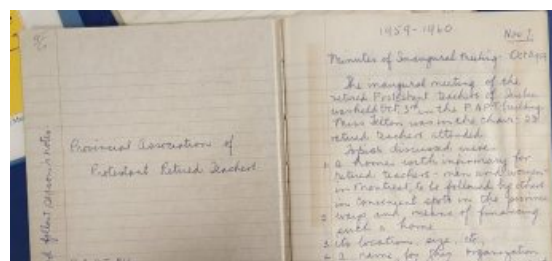 Provincial Association of
Protestant Retired Teachers
1959-1960
Nov 2,
Minutes of Inaugural Meeting - Oct 3
The inaugural meeting of the
retired Protestant teachers of Quebec
was held Oct. 3rd, the P.A.P.T. building.
Miss Felton was in the chair; 23
retired teachers attended.
Topics discussed were
1. a home with infirmary for
retired teachers - men and women
in Montreal, to be followed by others
in convenient spots in the province
2. ways and means of financing
such a home
3. its location, size, etc.,
4. a name for this organization